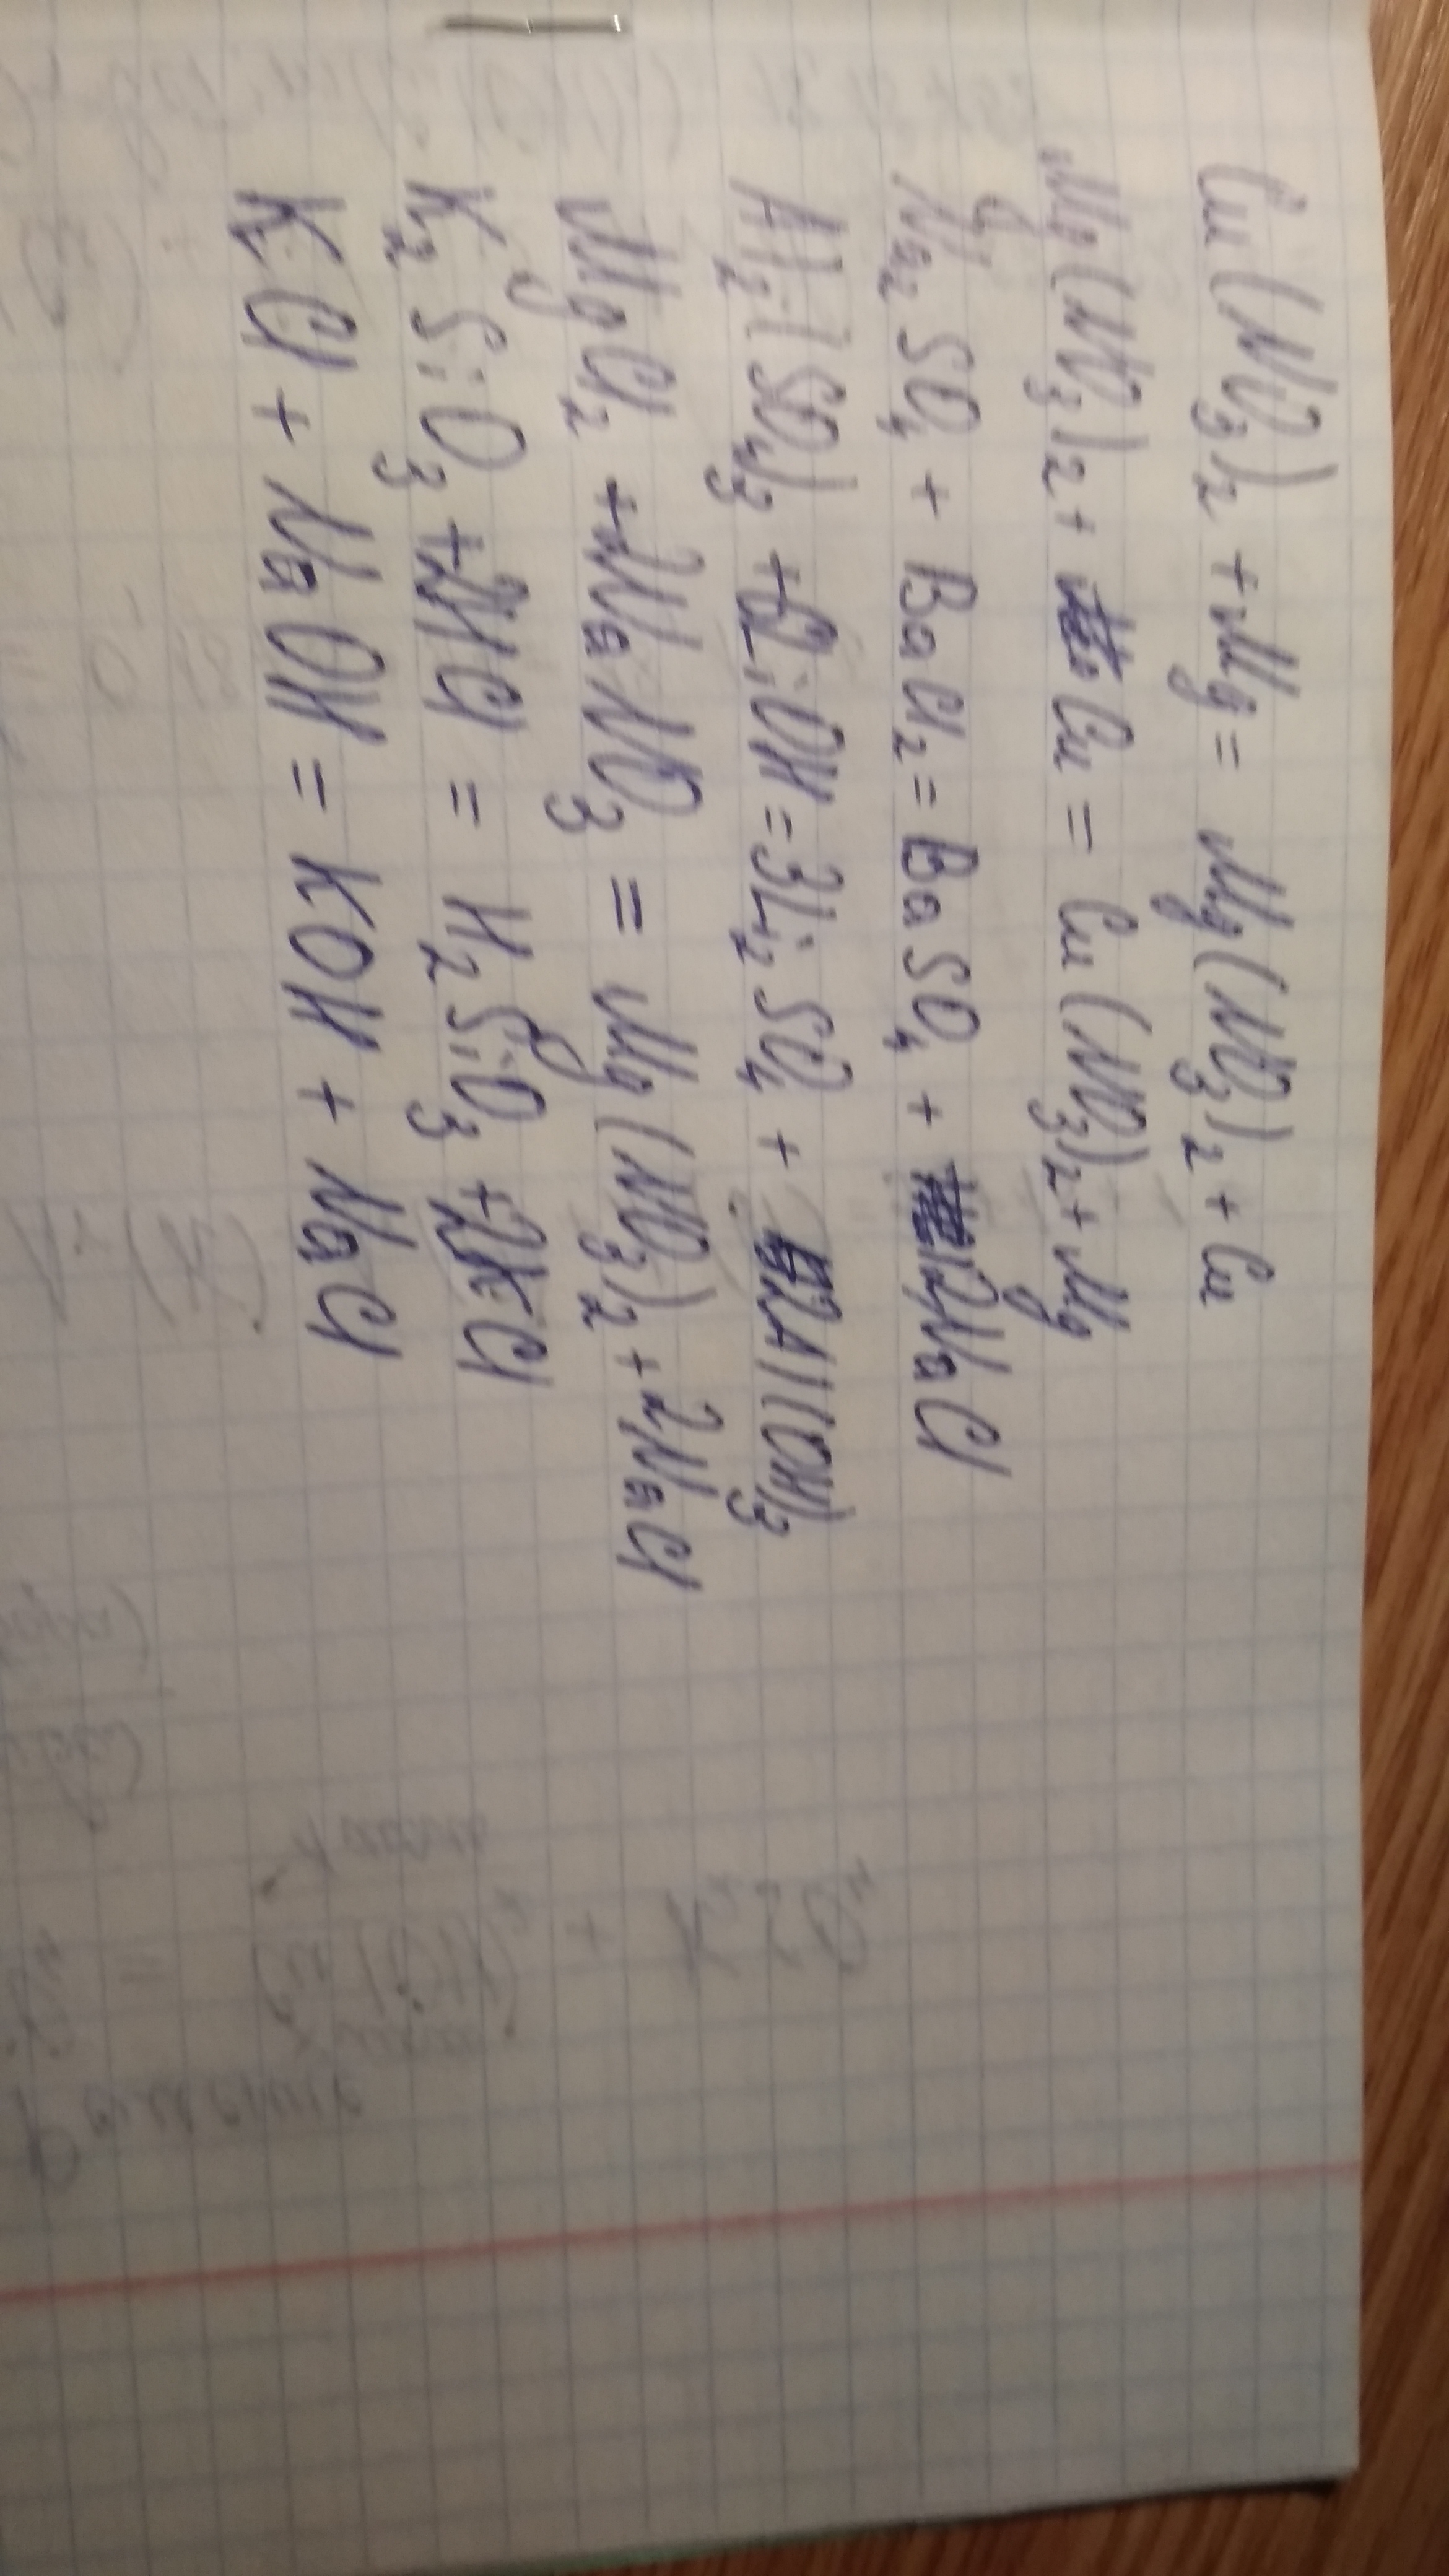 Cu(NO₃)₂ + Mg = Mg(NO₃)₂ + Cu
Mg(NO₃)₂ + Cu = Cu(NO₃)₂ + Mg
Na₂SO₄ + BaCl₂ = BaSO₄ + 2NaCl
Al₂(SO₄)₃ + LiOH = 3Li₂SO₄ + 2Al(OH)₃
MgCl₂ + 2NaNO₃ = Mg(NO₃)₂ + 2NaCl
K₂SiO₃ + 2HCl = H₂SiO₃ + 2KCl
KCl + NaOH = KOH + NaCl